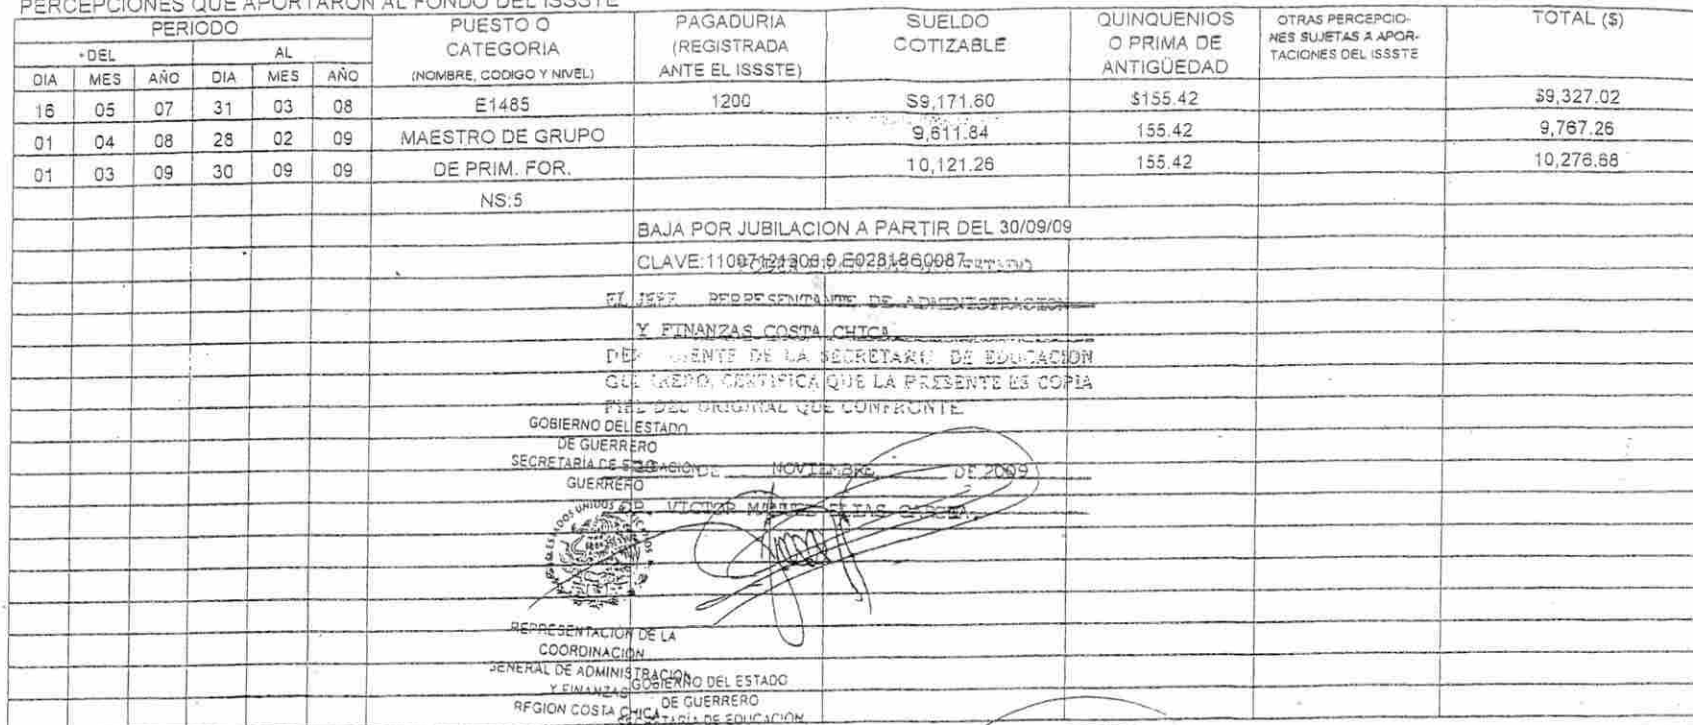 PERCEPCIONES QUE APORTARON AL FONDO DEL ISSSTE
PERIODO
DEL AL
DIA MES AÑO DIA MES AÑO
PUESTO O
CATEGORIA
(NOMBRE, CODIGO Y NIVEL)
PAGADURIA
(REGISTRADA
ANTE EL ISSSTE)
SUELDO
COTIZABLE
QUINQUENIOS
O PRIMA DE
ANTIGÜEDAD
OTRAS PERCEPCIO-
NES SUJETAS A APOR-
TACIONES DEL ISSSTE
TOTAL ($)
16 05 07 31 03 08 E1485 1200 $9,171.60 $155.42 $9,327.02
01 04 08 28 02 09 MAESTRO DE GRUPO 9,611.84 155.42 9,767.26
01 03 09 30 09 09 DE PRIM. FOR. 10,121.26 155.42 10,276.68
NS:5
BAJA POR JUBILACION A PARTIR DEL 30/09/09
CLAVE:11007121208.0 E0281860087
EL JEFE REPRESENTANTE DE ADMINISTRACION
Y FINANZAS COSTA CHICA
DE LA SECRETARIA DE EDUCACION
CERTIFICA QUE LA PRESENTE ES COPIA
FIEL DEL ORIGINAL QUE CONFRONTE
GOBIERNO DEL ESTADO
DE GUERRERO
SECRETARÍA DE EDUCACIÓN
GUERRERO
DE NOVIEMBRE DE 2009
VICTOR ELIAS
ESTADOS UNIDOS MEXICANOS
REPRESENTACIÓN DE LA
COORDINACIÓN
GENERAL DE ADMINISTRACION
Y FINANZAS
REGION COSTA CHICA
GOBIERNO DEL ESTADO
DE GUERRERO
SECRETARÍA DE EDUCACIÓN